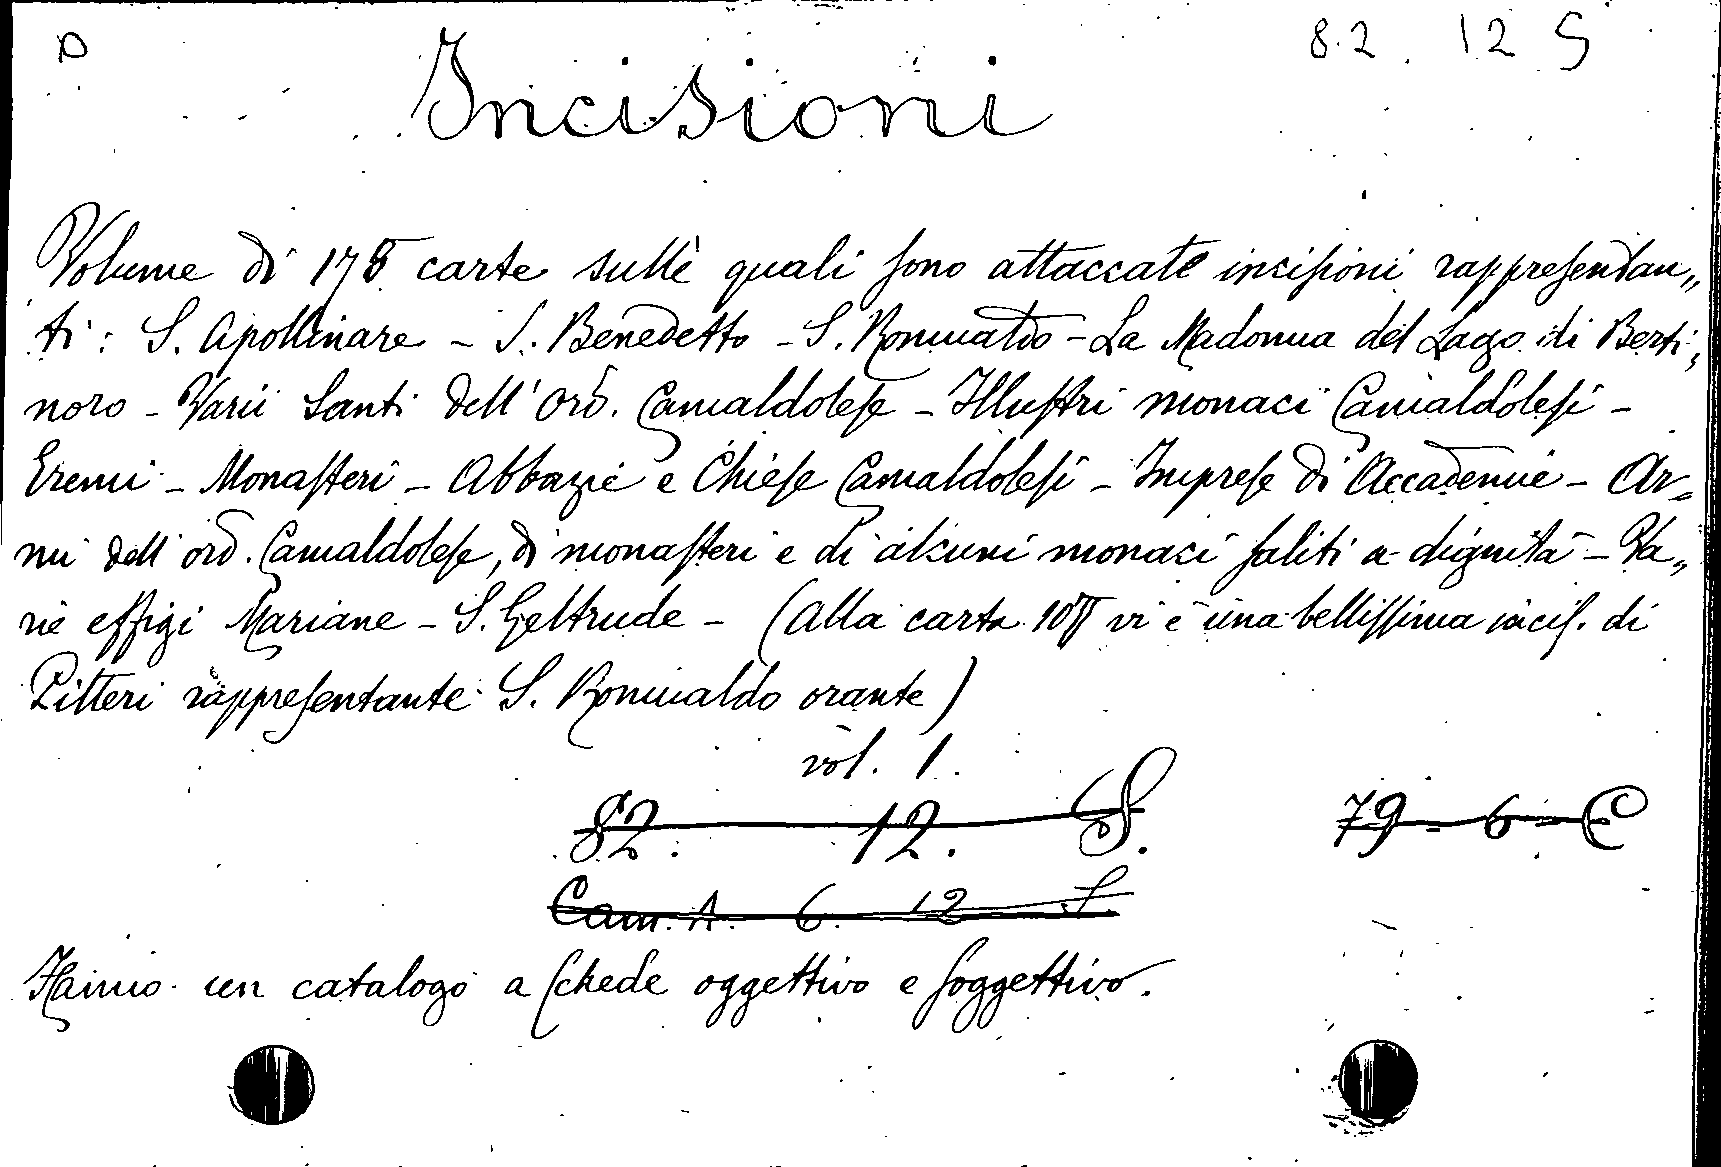 D 82. 12 S
Incisioni
Volume di 178 carte sulle quali sono attaccate incisioni rappresentan„
ti: S. Apollinare - S. Benedetto - S. Romualdo - La Madonna del Lago di Berti„
noro - Varii Santi dell' Ord. Camaldolese - Illustri monaci Camaldolesi -
Eremi - Monasteri - Abbazie e Chiese Camaldolesi - Imprese di Accademie - Ar=
mi dell' ord. Camaldolese, di monasteri e di alcuni monaci saliti a dignità - Va„
rie effigi Mariane - S. Geltrude - (Alla carta vi è una bellissima incis. di
Pitteri rappresentante S. Romualdo orante)
vol. 1.
82. 12. S. 79 - 6 - C
Cam. A. 6. 12 S.
Hanno un catalogo a schede oggettivo e soggettivo.